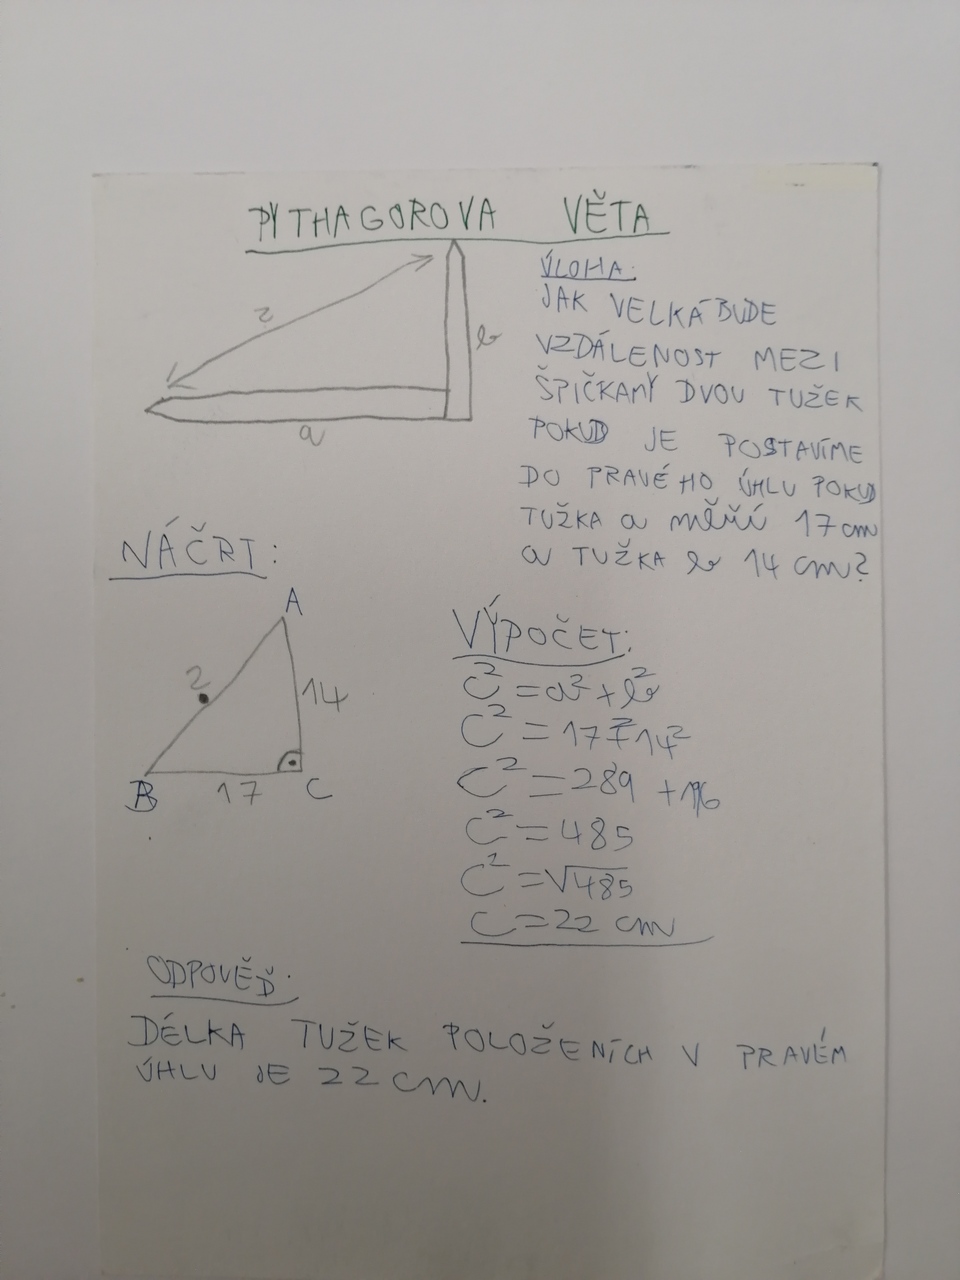 PYTHAGOROVA VĚTA
z
b
a
ÚLOHA:
JAK VELKÁ BUDE
VZDÁLENOST MEZI
ŠPIČKAMY DVOU TUŽEK
POKUD JE POSTAVÍME
DO PRAVÉHO ÚHLU POKUD
TUŽKA a měří 17 cm
a TUŽKA b 14 cm?
NÁČRT:
A
?
14
B 17 C
VÝPOČET:
C² = a² + b²
C² = 17² + 14²
C² = 289 + 196
C² = 485
C² = √485
C = 22 cm
ODPOVĚĎ:
DÉLKA TUŽEK POLOŽENÍCH V PRAVÉM
ÚHLU JE 22 cm.